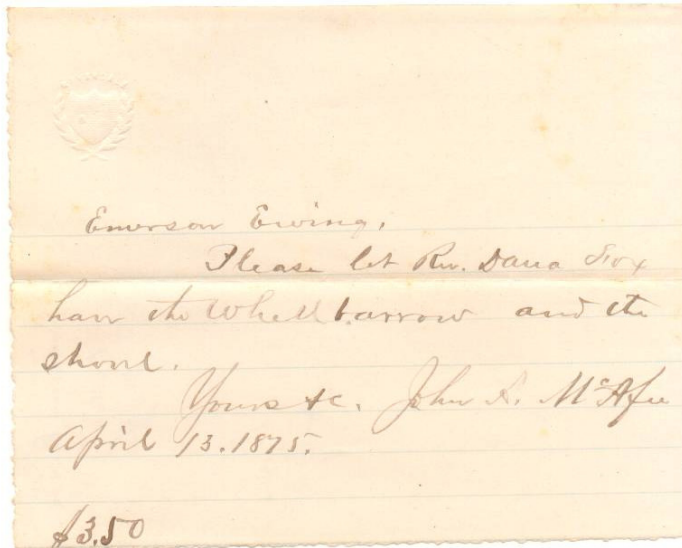 Emerson Ewing,
Please let Rev. Dana Fox
have the Wheelbarrow and the
shovel.
Yours &c. John A. McAfee
April 13. 1875.
$3.50